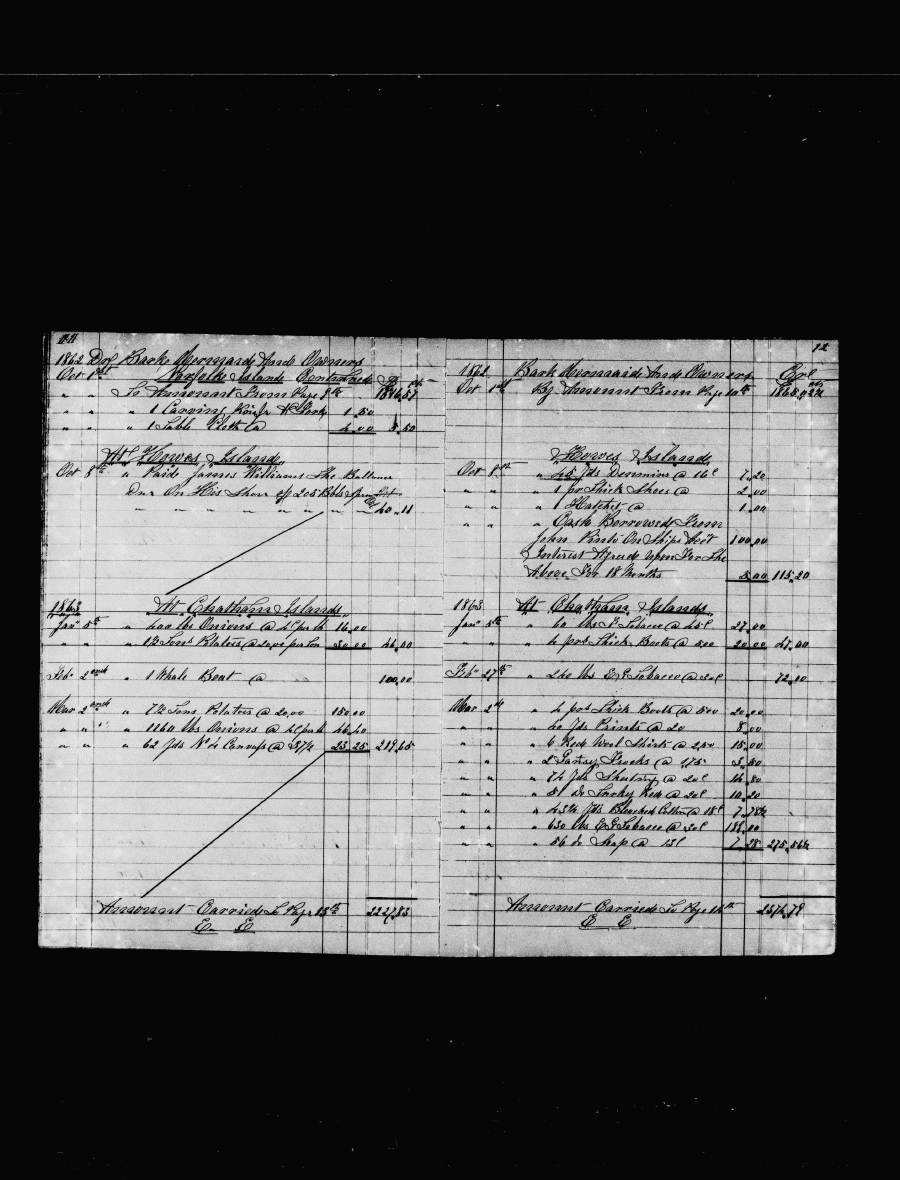 11
1862 Dr Bark Mermaid And Owners
Oct 1st Norfolk Island Continued $ cts
" " To Amount From Page 9th 1816,57
" " " 1 Carving Knife & Fork 1.50
" " " 1 Table Cloth @ 4.00 5.50
At Howes Island
Oct 8th " Paid James Williams The Ballance
Due On His Share of 205 Bbls Sperm
" " " " " " " " 40.11
1863 At Chatham Islands
Jany 5th " 400 lbs Onions @ 4c per lb 16.00
" " " 1½ Tons Potatoes @ 20.00 per ton 30.00 46.00
Feby 2ond " 1 Whale Boat @ 100.00
Mar 2ond " 7½ Tons Potatoes @ 20.00 150.00
" " " 1160 lbs Onions @ 4c per lb 46.40
" " " 62 Yds No 4 Canvass @ 37½ 23.25 219.65
Amount Carried To Page 13th 2227.83
E E
12
1862 Bark Mermaid And Owners Cr
Oct 1st By Amount From Page 10th
Howes Island
Oct 8th " 45 Yds Dennims @ 16c 7.20
" " " 1 pr Thick Shoes @ 2.00
" " " 1 Hatchet @ 1.00
" " " Cash Borrowed From
John Pinto On Ships Acct 100.00
Interest Agreed Upon For The
Above For 18 Months 5.00 115.20
1863 At Chatham Islands
Jany 5th " 60 lbs F Tobacco @ 45c 27.00
" " " 4 prs Thick Boots @ 5.00 20.00 47.00
Feby 27th " 240 lbs E.G. Tobacco @ 30c 72.00
Mar 2nd " 4 prs Thick Boots @ 5.00 20.00
" " " 40 Yds Prints @ 20 8.00
" " " 6 Red Wool Shirts @ 2.50 15.00
" " " 2 Gansy Frocks @ 1.75 3.50
" " " 74 Yds Sheeting @ 20c 14.80
" " " 51 do Turky Red @ 20c 10.20
" " " 43¾ Yds Bleached Cotton @ 18c 7.78½
" " " 630 lbs E.G. Tobacco @ 30c 189.00
" " " 56 do Soap @ 13c 7.28 275.56½
Amount Carried To Page 14th 2374.79
E E